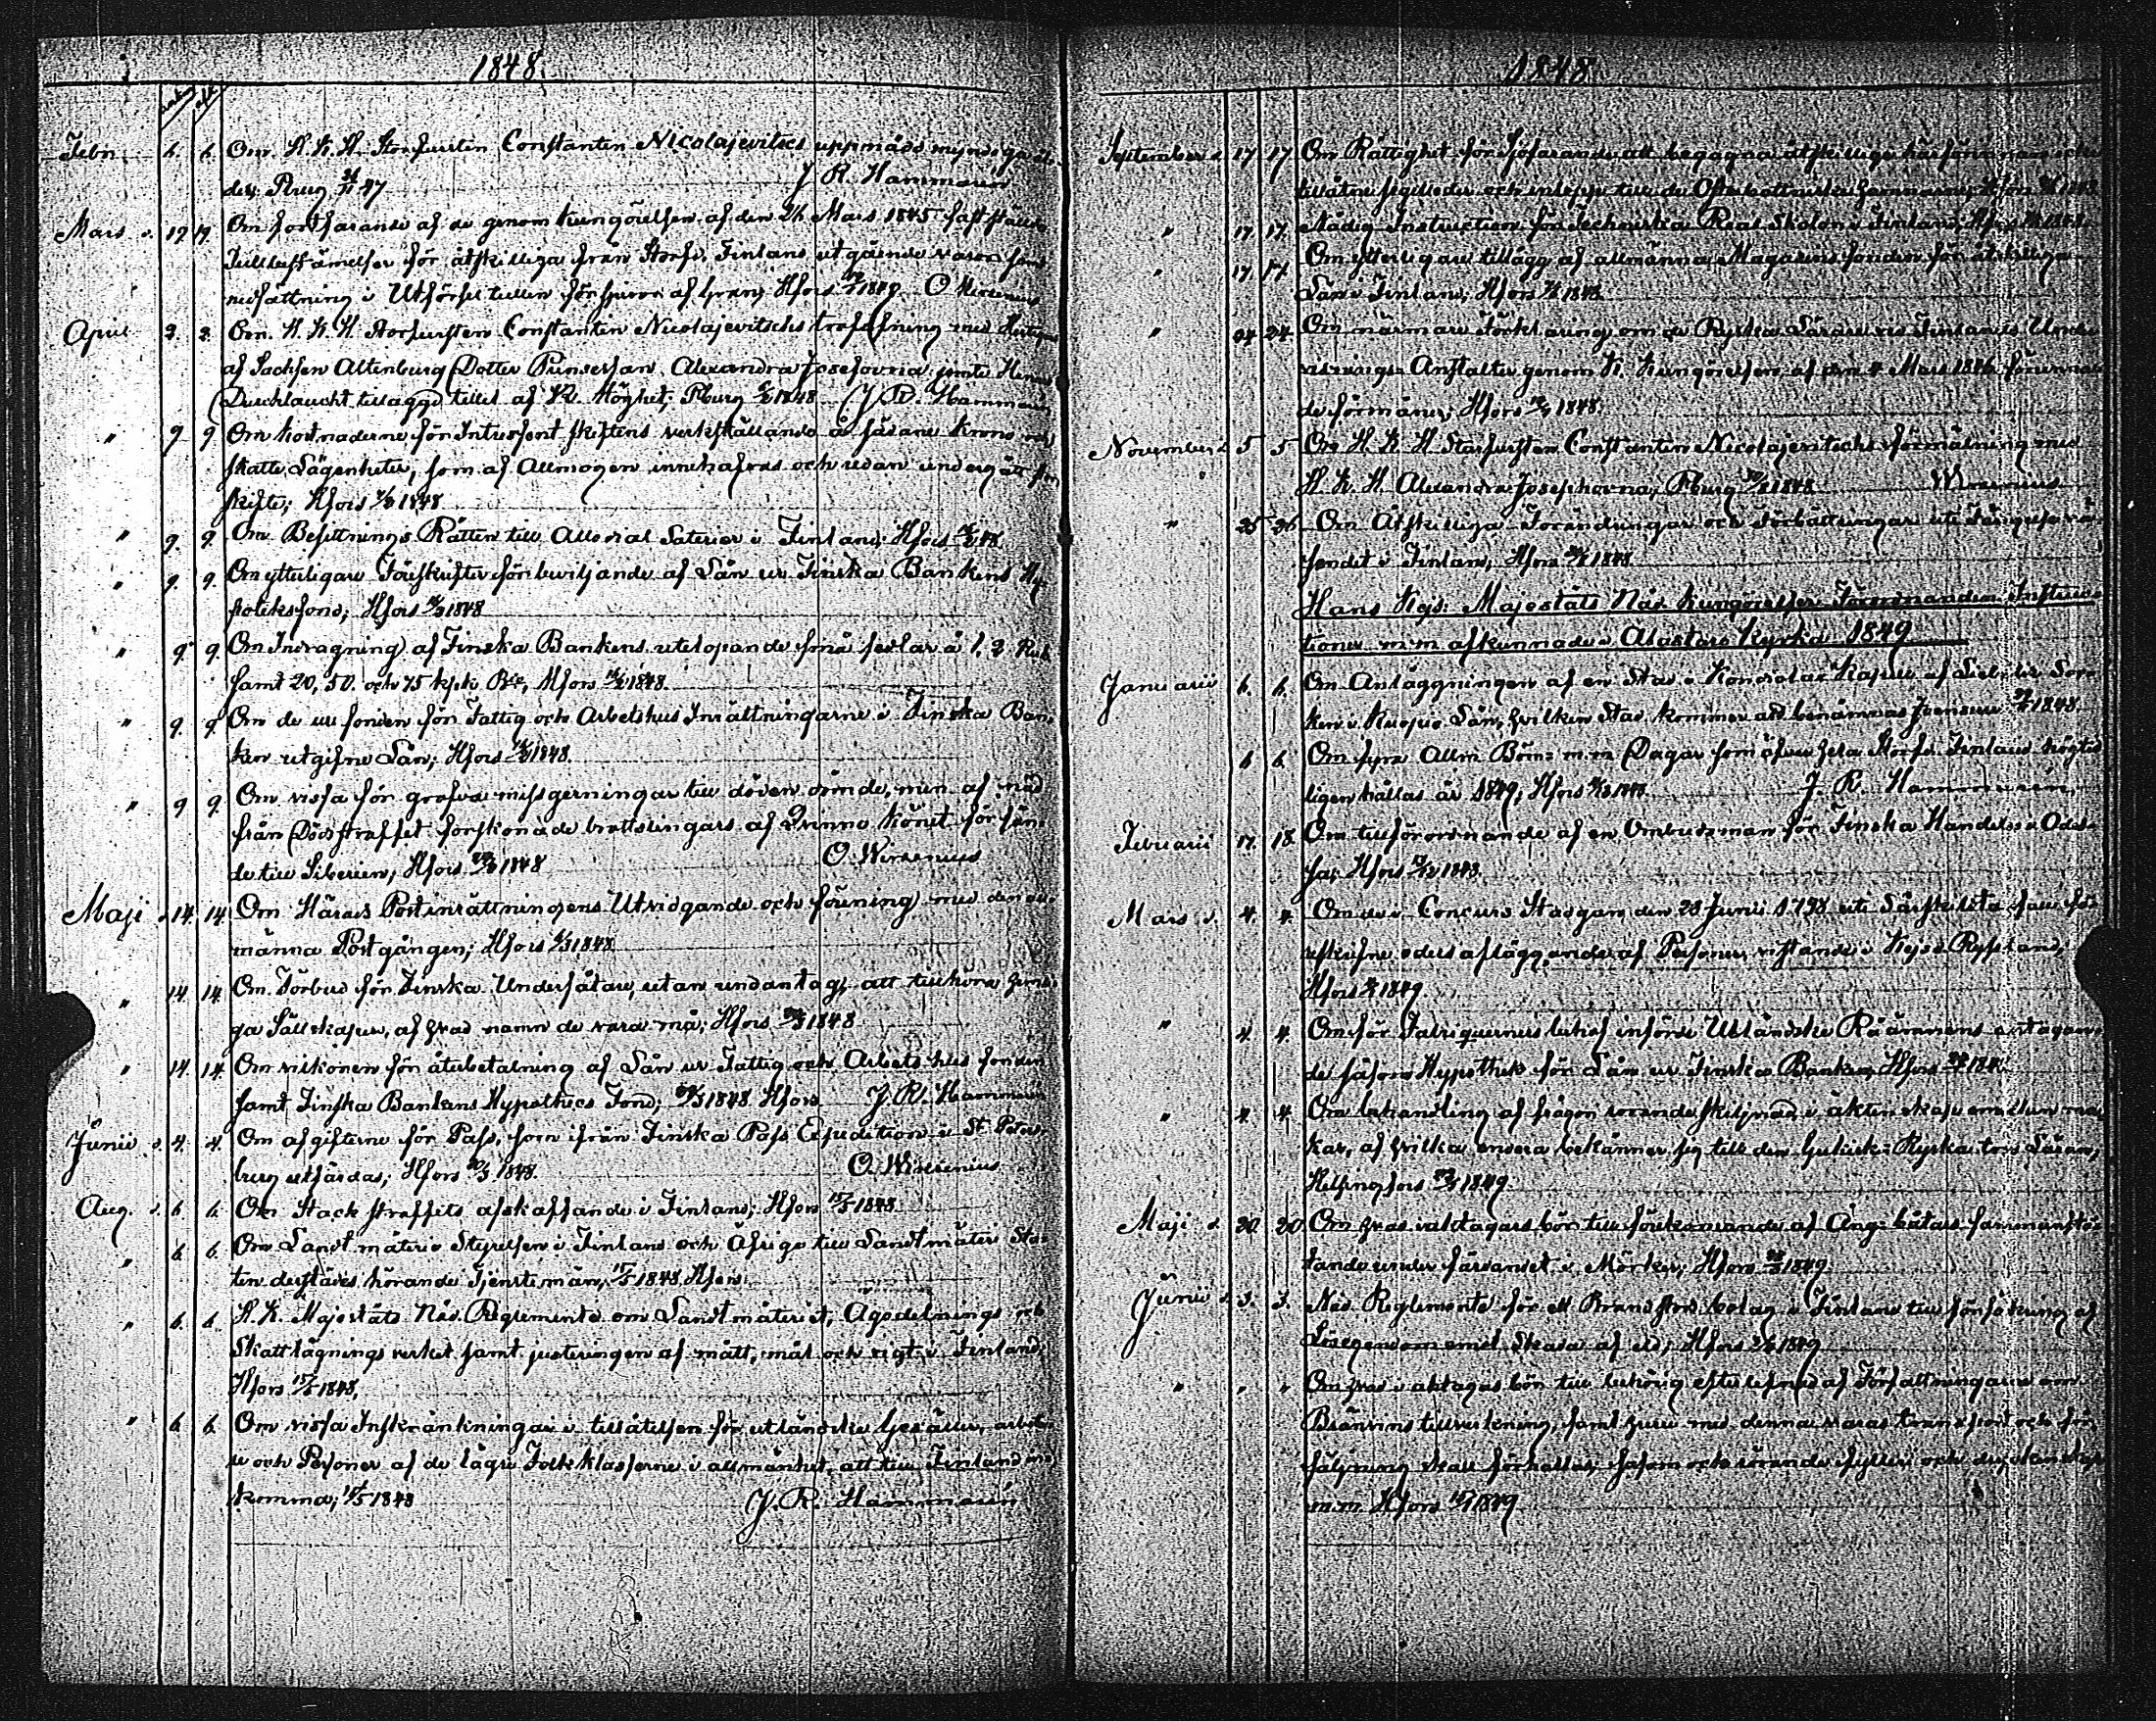 1848
Febr. 6. 6. Om H. K. H. Storfursten Constantin Nicolajevitsch uppnådd myndig ål-
der; Pburg 47 J R Hammarin
Mars d. 19 19. Om fortfarande af de genom kungörelsen af den 26 Mars 1845 fastställda
för åtskilliga från Storf. Finland utgående varor samt
nedsättning i Utförsel tullen för af Hfors 1848 O Wirzenius
April 2. 2. Om H. K. H. Storfursten Constantin Nicolajevitschs trolofning med Hertigen
af Sachsen Altenburg Dotter Prinsessan Alexandra Josefovna jemte Henne
Durchlaucht tillagde titel af K. Höghet; Pburg 1848 J R. Hammarin
" 9 9 Om kostnaderne för skiftens verkställande å sådane Krono och
skatte Lägenheter, som af Allmogen innehafvas och redan undergått stor
skifte; Hfors 1848
" 9. 9. Om Besittnings Rätten till Allodial Säterier i Finland; Hfors 48.
" 9. 9. Om ytterligare Föreskrifter för beviljande af Lån ur Finska Bankens Hy-
poteksfond; Hfors 1848
" 9. 9. Om Indragning af Finska Bankens utelöpande små sedlar à 1, 3 Rub.
samt 20, 50. och 75 kpk Hfors 1848.
" 9. 9. Om de ur fonden för Fattig och Arbetshus Inrättningarne i Finska Ban-
ken utgifne Lån; Hfors 1848.
" 9 9. Om vissa för grofva missgerningar till döden dömde, men af nåd
från Dödsstraffet förskonade brottslingars af Qvinno könet förfän-
de till Siberien; Hfors 1848 O. Wirzenius
Maji d. 14. 14. Om Härads Postinrättningens Utvidgande och förening med den all-
männa Postgången; Hfors 1848
" 14. 14. Om Förbud för Finska Undersåtare, utan undantag, att tillhöra hemli-
ga Sällskaper, af hvad namn de vara må; Hfors 1848
" 14. 14. Om vilkoren för återbetalning af Lån ur Fattig och Arbetshus fonden
samt Finska Bankens Hypotheks Fond; 1848 Hfors J. R. Hammarin
Junii d. 4. 4. Om afgifterne för Pass, som ifrån Finska Pass Expedition i St Peters-
burg utfärdas; Hfors 1848. O. Wirzenius
Aug. d. 6. 6. Om straffets afskaffande i Finland; Hfors 1848
" 6. 6. Om Landtmäteri Styrelsen i Finland och Öfrige till Landtmäteri Sta-
ten derstädes hörande Tjenstemän, 1848, Hfors.
" 6. 6. H. K. Majestäts Nåd. Reglemente om Landtmäteriet, Ägodelnings och
Skattläggnings verket samt justeringen af mått, mål och vigt i Finland;
Hfors 1848.
" 6. 6. Om vissa Inskränkningar i tillåtelsen för utländske Gesäller, arbeta-
re och Personer af de lägre Folkklasserne i allmänhet, att till Finland in-
komma; 1848 J. R. Hammarin
1848
September d. 17 17 Om Rättighet för Sjöfarande att begagna åtskillige härförinnan icke
tillåtne segelleder och inlopp till de Österbottniska hamnarne; Hfors 1848
" 17. 17. Nådig Instruction för Techniska Real Skolan i Finland; Hfors 1848.
" 17. 17. Om ytterligare tillägg af allmänna Magasins fonder för åtskilliga
Län i Finland; Hfors 1848
" 24 24 Om närmare Förklaring om de Ryska Lärare vid Finlands Under-
visnings Anstalter genom K. Kungörelsen af den Mars 1846 förunna-
de förmåner; Hfors 1848.
November d. 5 5 Om H. K. H Storfursten Constantin Nicolajevitschs förmälning med
H. K. H. Alexandra Josephovna, Pburg 1848 Wirzenius
" 25 26 Om Åtskilliga Förändringar och Förbättringar uti Fängelse vä-
sendet i Finland; Hfors 1848.
Hans Kejs. Majestäts Nåd. Kungörelser Förordnanden Instruc-
tioner m m afkunnade i Alastaro Kyrka 1849
Januarii 6. 6. Om Anläggningen af en Stad i Kondiolax Kapell af Liebelits Soc-
ken i Kuopio Län, hvilken Stad kommer att benämnas Joensuu 1848
6. 6. Om fyra Allm. Böne- m m Dagar som öfver hela Storf. Finland högtid-
ligen hållas år 1849; Hfors 1848 J. R. Hammarin
Februarii 17. 18. Om tillförordnande af en Ombudsman för Finska Handels i Odes-
sa; Hfors 1848.
Mars d. 4. 4. Om de i Concurs Stadgan den 28 Junii 1798 uti Särskilda fall för-
eskrifne edens afläggande af Personer vistande i Kejs. Ryssland,
Hfors 1849.
" 4. 4. Om för Fabriquernes behof införde Utländske Räämnens antagan-
de såsom Hypothek för Lån ur Finska Banken, Hfors 184
" 4. 4. Om behandling af frågor rörande skiljnad i äktenskap emellan ma-
kar, af hvilka endera bekänner sig till den Grekisk-Ryska tros Läran,
Helsingfors 1849.
Maji d. 20. 20 Om hvad iakttagas bör till förekommande af Ång-båtars sammanstö-
tande under färdandet i Mörker; Hfors 1849
Junii d. 3. 3. Nåd. Reglemente för ett Brandstods bolag i Finland till försäkring af
Lösegendom emot Skada af eld; Hfors 1849
" " " Om hvad iakttagas bör till behörig efterlefnad af Författningarne om
Bränvins tillverkning, samt huru med denna varas transport och för-
säljning skall förhållas, såsom och rörande fylleri och dryckenskap
m.m. Hfors 1849